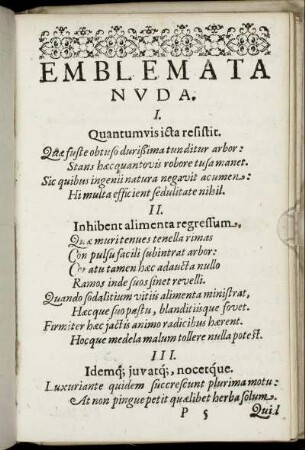 EMBLEMATA
NVDA.
I.
Quantumvis icta resistit.
Quæ fuste obtuso durißima tunditur arbor:
Stans hæc quantovis robore tusa manet.
Sic quibus ingenii natura negavit acumen:
Hi multa efficient sedulitate nihil.
II.
Inhibent alimenta regressum,
Quæ muri tenues tenella rimas
Con pulsu facili subintrat arbor:
atu tamen hæc adaucta nullo
Ramos inde suos sinet revelli.
Quando sodalitium vitiis alimenta ministrat,
Hæcque suo pæstu, blanditiisque fovet.
Firmiter hæc jactis animo radicibus hærent.
Hocque medela malum tollere nulla potest.
III.
Idemq; juvatq;, nocetque.
Luxuriante quidem succrescunt plurima motu:
At non pingue petit quælibet herba solum.
P 5
Qui l